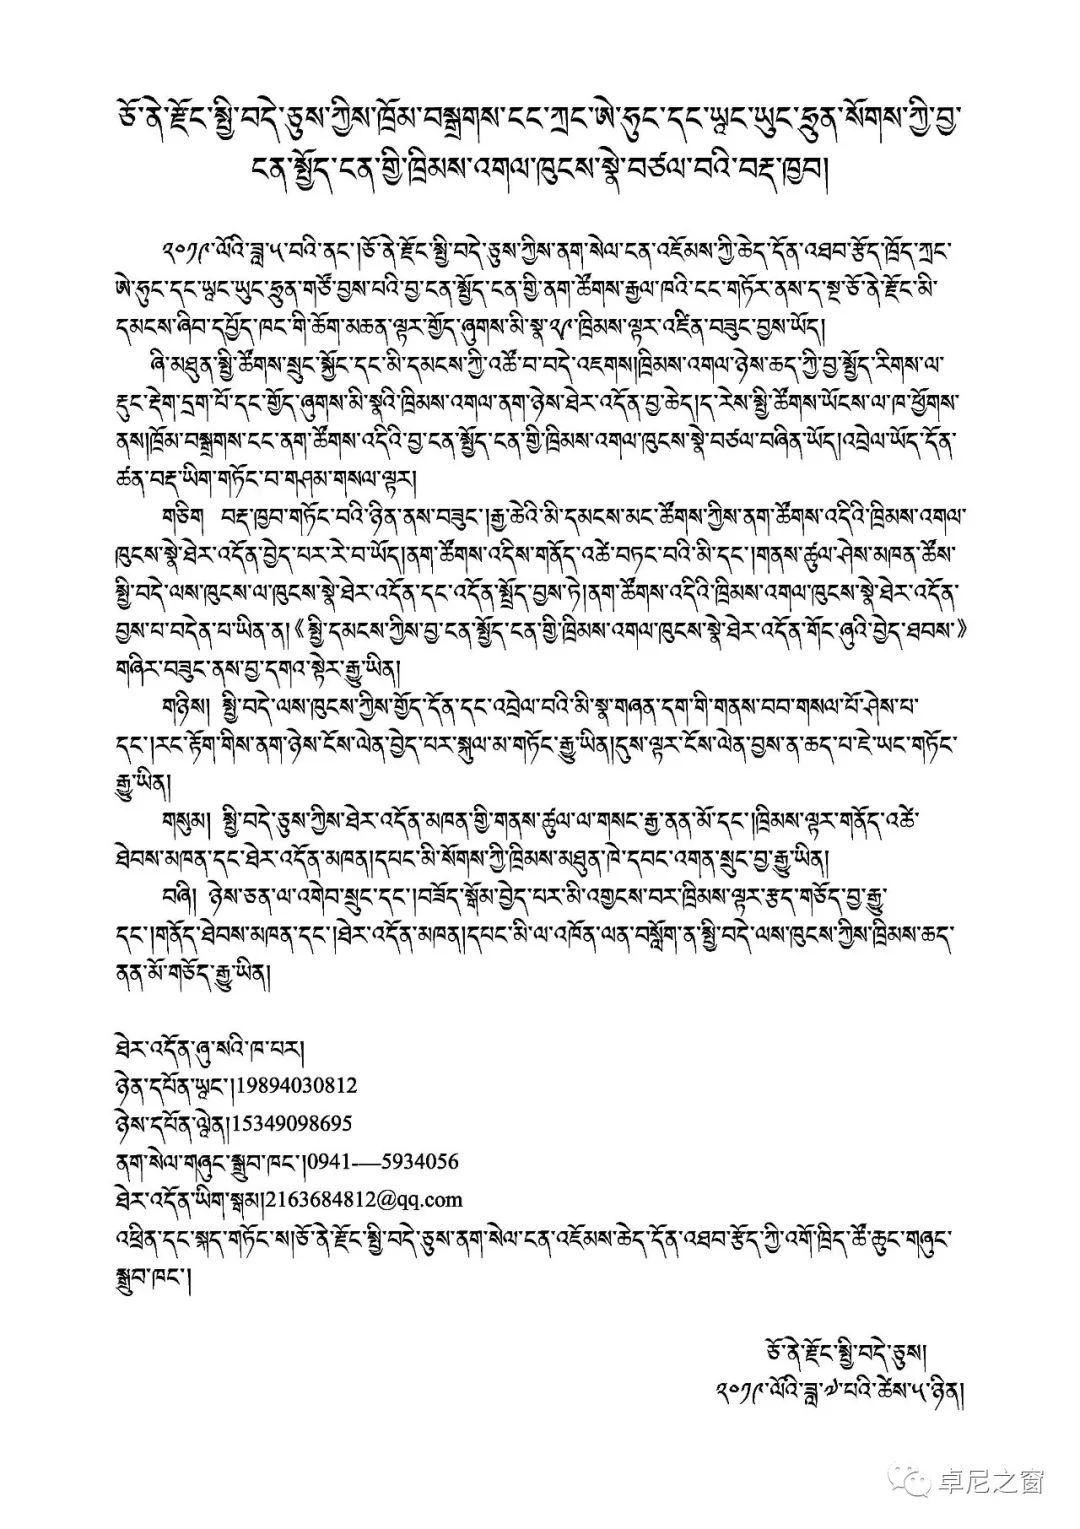 ཅོ་ནེ་རྫོང་སྤྱི་བདེ་ཅུས་ཀྱིས་ཁྲོམ་བསྒྲགས་ངང་ཀྲང་ཨེ་ཧུང་དང་ཡྭང་ཡུང་ཧྲུན་སོགས་ཀྱི་བྱ་
ངན་སྤྱོད་ངན་གྱི་ཁྲིམས་འགལ་ཁུངས་སྣེ་བཙལ་བའི་བརྡ་ཁྱབ།
༢༠༡༩་ལོའི་ཟླ་༥་བའི་ནང་།ཅོ་ནེ་རྫོང་སྤྱི་བདེ་ཅུས་ཀྱིས་ནག་སེལ་ངན་འཇོམས་ཀྱི་ཆེད་དོན་འཐབ་རྩོད་ཁྲོད་ཀྲང་
ཨེ་ཧུང་དང་ཡྭང་ཡུང་ཧྲུན་གཙོ་བྱས་པའི་བྱ་ངན་སྤྱོད་ངན་གྱི་ནག་ཚོགས་རྒྱལ་ཁའི་ངང་གཏོར་ནས་ད་སྔ་ཅོ་ནེ་རྫོང་མི་
དམངས་ཞིབ་དཔྱོད་ཁང་གི་ཆོག་མཆན་ལྟར་གྱོད་ཞུགས་མི་སྣ་༢༩་ཁྲིམས་ལྟར་འཛིན་བཟུང་བྱས་ཡོད།
ཞི་མཐུན་སྤྱི་ཚོགས་སྲུང་སྐྱོང་དང་མི་དམངས་ཀྱི་འཚོ་བ་བདེ་འཇགས།ཁྲིམས་འགལ་ཉེས་ཆད་ཀྱི་བྱ་སྤྱོད་རིགས་ལ་
རྡུང་རྡེག་དྲག་པོ་དང་གྱོད་ཞུགས་མི་སྣའི་ཁྲིམས་འགལ་ནག་ཉེས་ཐེར་འདོན་བྱ་ཆེད།ད་རེས་སྤྱི་ཚོགས་ཡོངས་ལ་ཁ་ཕྱོགས་
ནས།ཁྲོམ་བསྒྲགས་ངང་ནག་ཚོགས་འདིའི་བྱ་ངན་སྤྱོད་ངན་གྱི་ཁྲིམས་འགལ་ཁུངས་སྣེ་བཙལ་བཞིན་ཡོད།འབྲེལ་ཡོད་དོན་
ཚན་བརྡ་ཡིག་གཏོང་བ་གཤམ་གསལ་ལྟར།
གཅིག བརྡ་ཁྱབ་གཏོང་བའི་ཉིན་ནས་བཟུང་།རྒྱ་ཆེའི་མི་དམངས་མང་ཚོགས་ཀྱིས་ནག་ཚོགས་འདིའི་ཁྲིམས་འགལ་
ཁུངས་སྣེ་ཐེར་འདོན་བྱེད་པར་རེ་བ་ཡོད།ནག་ཚོགས་འདིས་གནོད་འཚེ་བཏང་བའི་མི་དང་།གནས་ཚུལ་ཤེས་མཁན་ཚོས་
སྤྱི་བདེ་ལས་ཁུངས་ལ་ཁུངས་སྣེ་ཐེར་འདོན་དང་འདོན་སྤྲོད་བྱས་ཏེ།ནག་ཚོགས་འདིའི་ཁྲིམས་འགལ་ཁུངས་སྣེ་ཐེར་འདོན་
བྱས་པ་བདེན་པ་ཡིན་ན།《སྤྱི་དམངས་ཀྱིས་བྱ་ངན་སྤྱོད་ངན་གྱི་ཁྲིམས་འགལ་ཁུངས་སྣེ་ཐེར་འདོན་གོང་ཞུའི་བྱེད་ཐབས་》
གཞིར་བཟུང་ནས་བྱ་དགའ་སྟེར་རྒྱུ་ཡིན།
གཉིས། སྤྱི་བདེ་ལས་ཁུངས་ཀྱིས་གྱོད་དོན་དང་འབྲེལ་བའི་མི་སྣ་གཞན་དག་གི་གནས་བབ་གསལ་པོ་ཤེས་པ་
དང་།རང་རྟོག་གིས་ནག་ཉེས་ངོས་ལེན་བྱེད་པར་སྐུལ་མ་གཏོང་རྒྱུ་ཡིན།དུས་ལྟར་ངོས་ལེན་བྱས་ན་ཆད་པ་ཇེ་ཡང་གཏོང་
རྒྱུ་ཡིན།
གསུམ། སྤྱི་བདེ་ཅུས་ཀྱིས་ཐེར་འདོན་མཁན་གྱི་གནས་ཚུལ་ལ་གསང་རྒྱ་ནན་མོ་དང་།ཁྲིམས་ལྟར་གནོད་འཚེ་
ཐེབས་མཁན་དང་ཐེར་འདོན་མཁན།དཔང་མི་སོགས་ཀྱི་ཁྲིམས་མཐུན་ཁེ་དབང་འགན་སྲུང་བྱ་རྒྱུ་ཡིན།
བཞི། ཉེས་ཅན་ལ་འགེབ་སྲུང་དང་།བཟོད་སྒོམ་བྱེད་པར་མི་འགྱངས་བར་ཁྲིམས་ལྟར་རྩད་གཅོད་བྱ་རྒྱུ་
དང་།གནོད་ཐེབས་མཁན་དང་།ཐེར་འདོན་མཁན།དཔང་མི་ལ་འཁོན་ལན་བསློག་ན་སྤྱི་བདེ་ལས་ཁུངས་ཀྱིས་ཁྲིམས་ཆད་
ནན་མོ་གཅོད་རྒྱུ་ཡིན།
ཐེར་འདོན་ཞུ་སའི་ཁ་པར།
ཉེན་དཔོན་ཡྭང་།19894030812
ཉེས་དཔོན་ལྷེན།15349098695
ནག་སེལ་གཞུང་སྒྲུབ་ཁང་།0941-—5934056
ཐེར་འདོན་ཡིག་སྒམ།2163684812@qq.com
འཕྲིན་དང་སྐད་གཏོང་ས།ཅོ་ནེ་རྫོང་སྤྱི་བདེ་ཅུས་ནག་སེལ་ངན་འཇོམས་ཆེད་དོན་འཐབ་རྩོད་ཀྱི་འགོ་ཁྲིད་ཚོ་ཆུང་གཞུང་
སྒྲུབ་ཁང་།
ཅོ་ནེ་རྫོང་སྤྱི་བདེ་ཅུས།
༢༠༡༩་ལོའི་ཟླ་༧་པའི་ཚེས་༥་ཉིན།
卓尼之窗